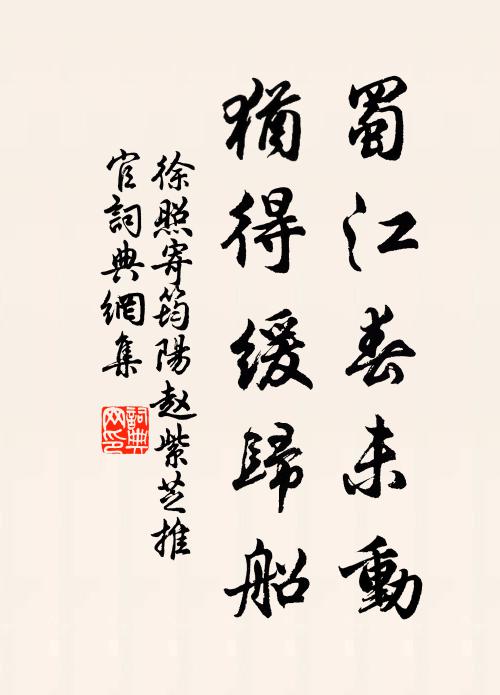 蜀江春未動
猶得緩歸船
徐照寄筠陽赵紫芝推
官詞典網集
詞典
网印